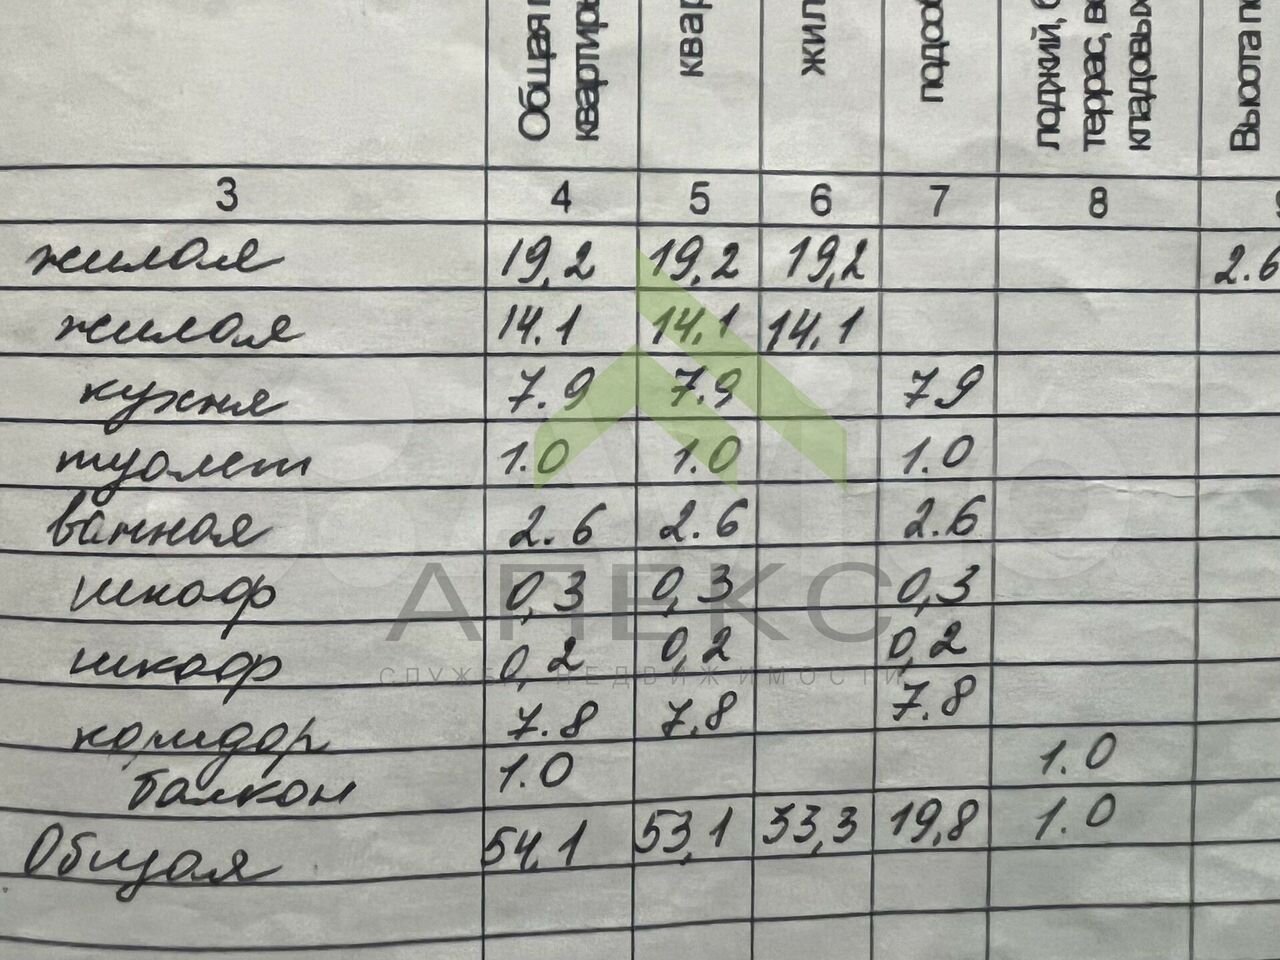 Общая
квартиры
квар
жил
подсоб
лоджий,
террас,
кладовых
Высота
3 4 5 6 7 8
жилая 19,2 19,2 19,2 2.6
жилая 14.1 14,1 14,1
кухня 7.9 7.9 7.9
туолет 1.0 1.0 1.0
ванная 2.6 2.6 2.6
шкаф 0,3 0,3 0,3
шкаф 0,2 0,2 0,2
коридор 7.8 7,8 7.8
балкон 1.0 1.0
Общая 54,1 53,1 33,3 19,8 1.0
АПЕКС
СЛУЖБА НЕДВИЖИМОСТИ